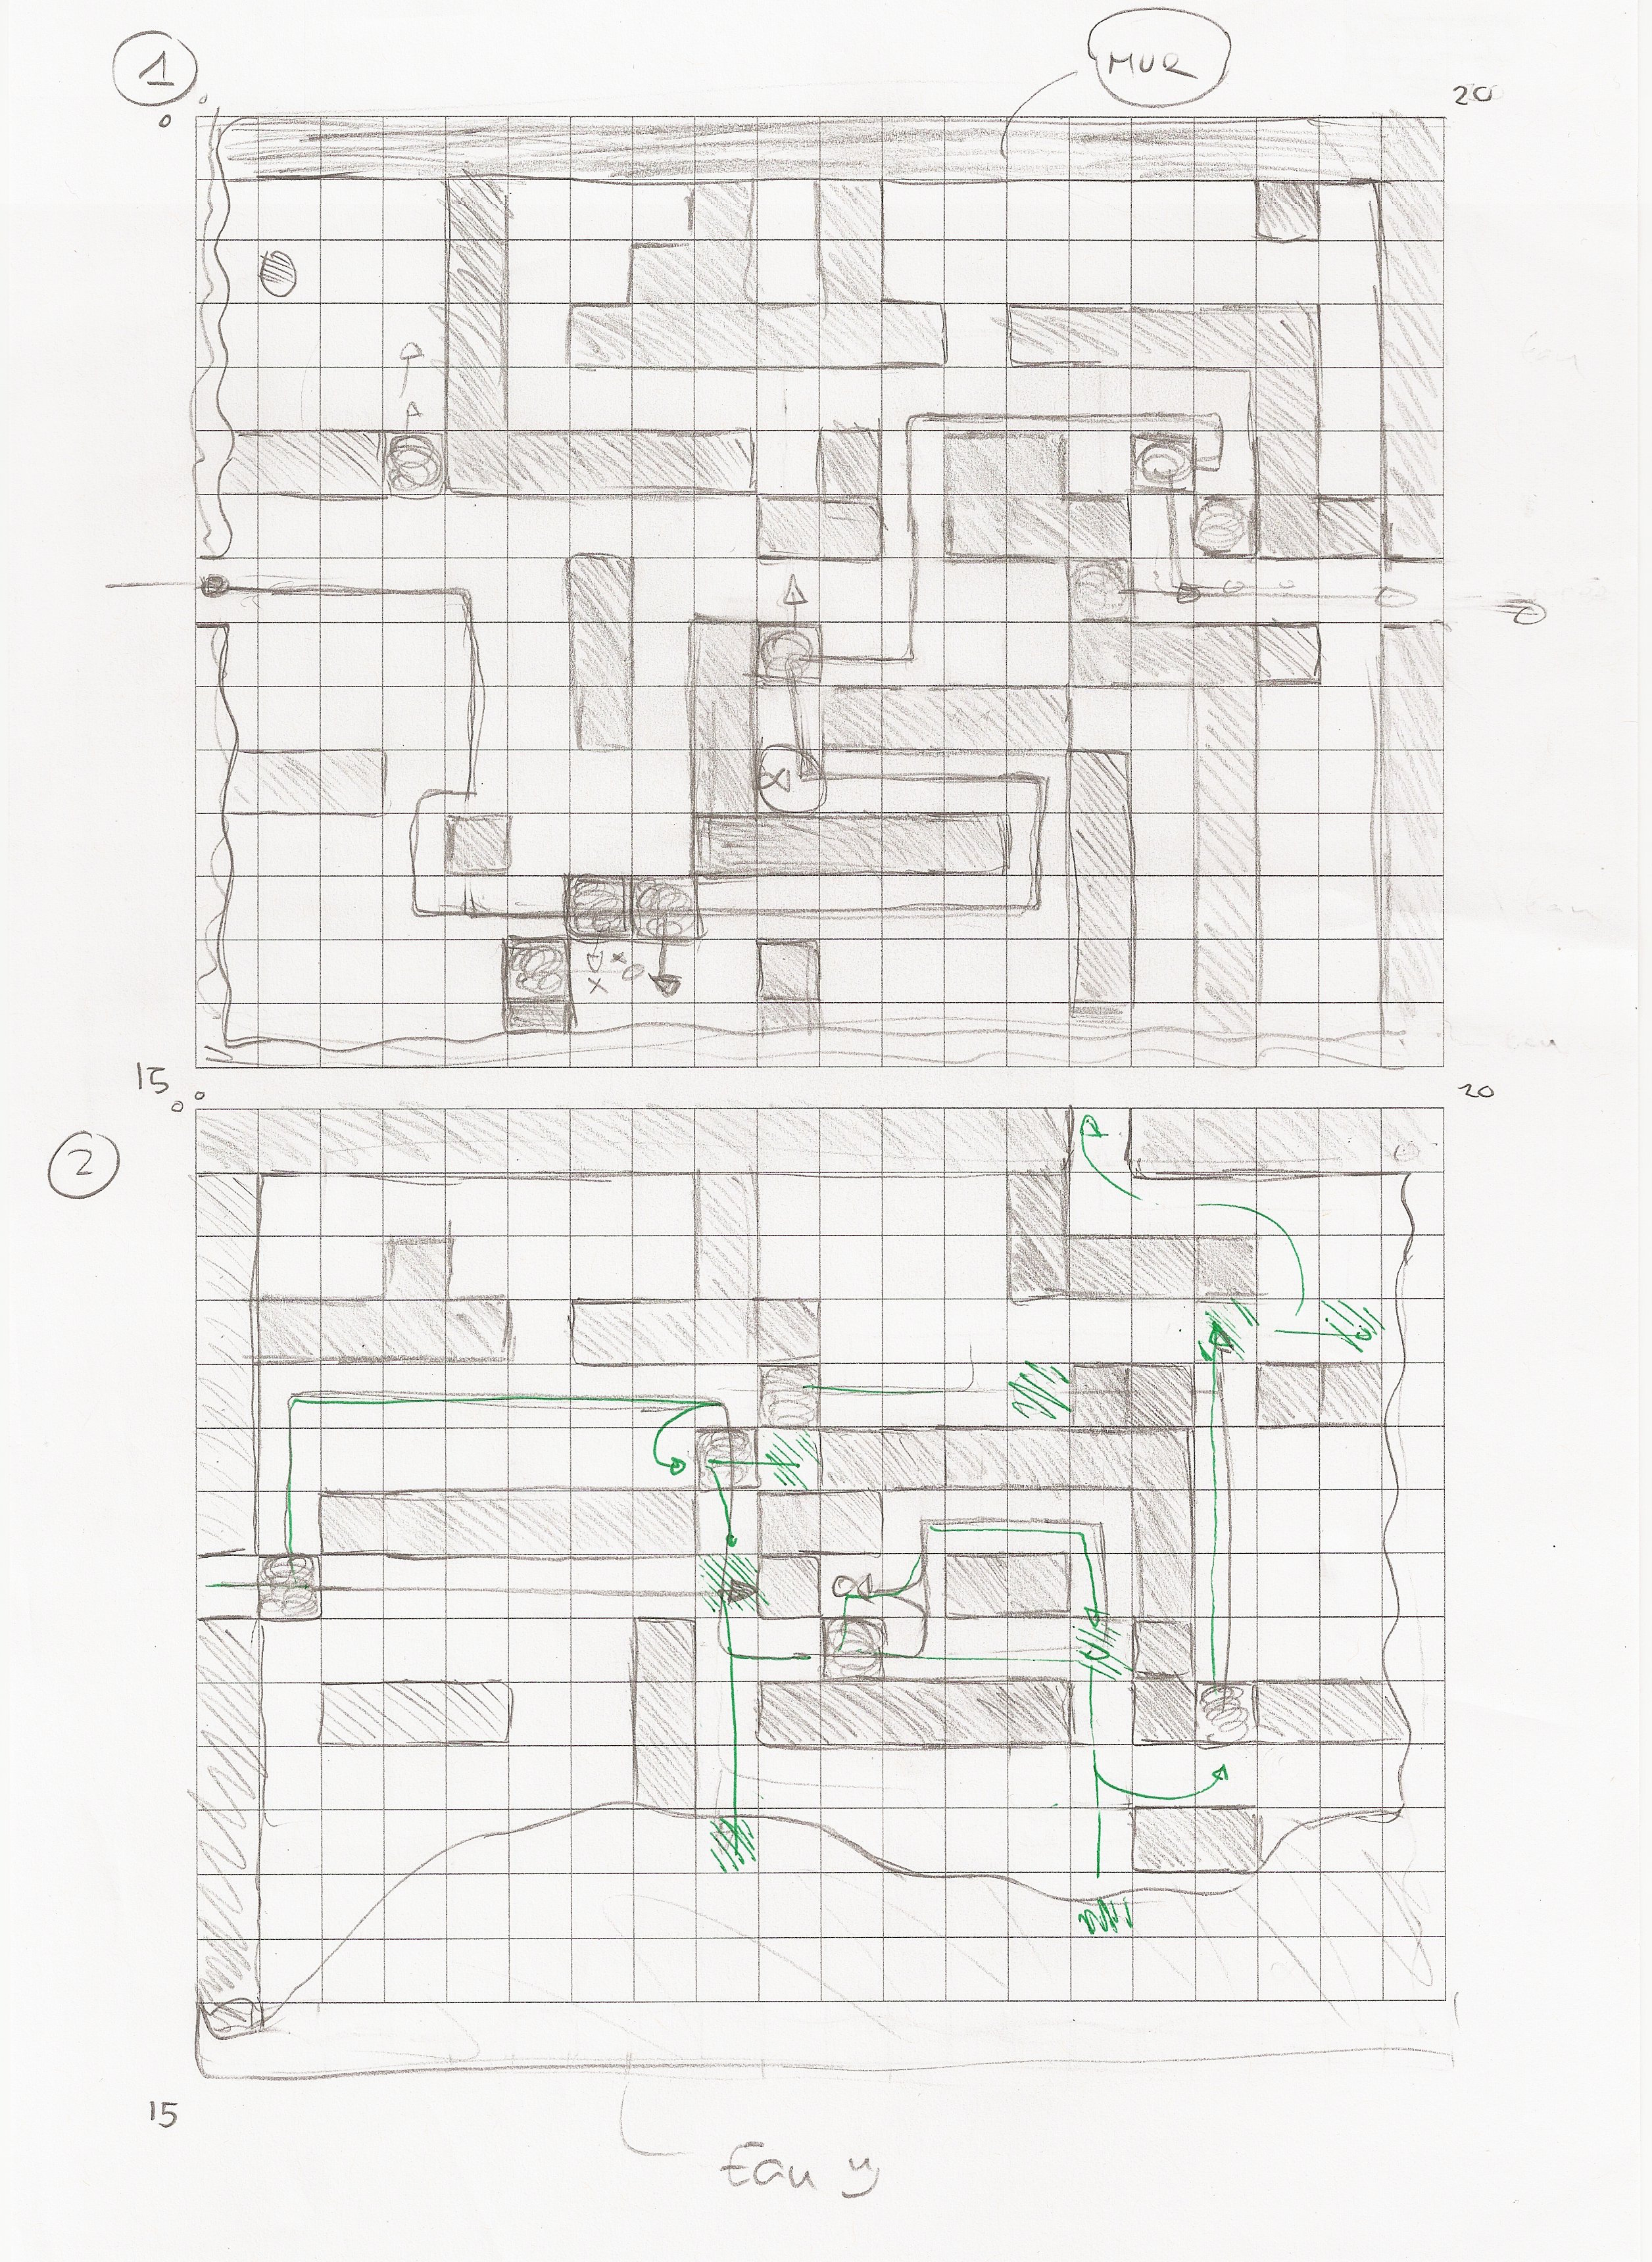 1
MUR
0
0
20
15
0
0
20
2
15
Eau